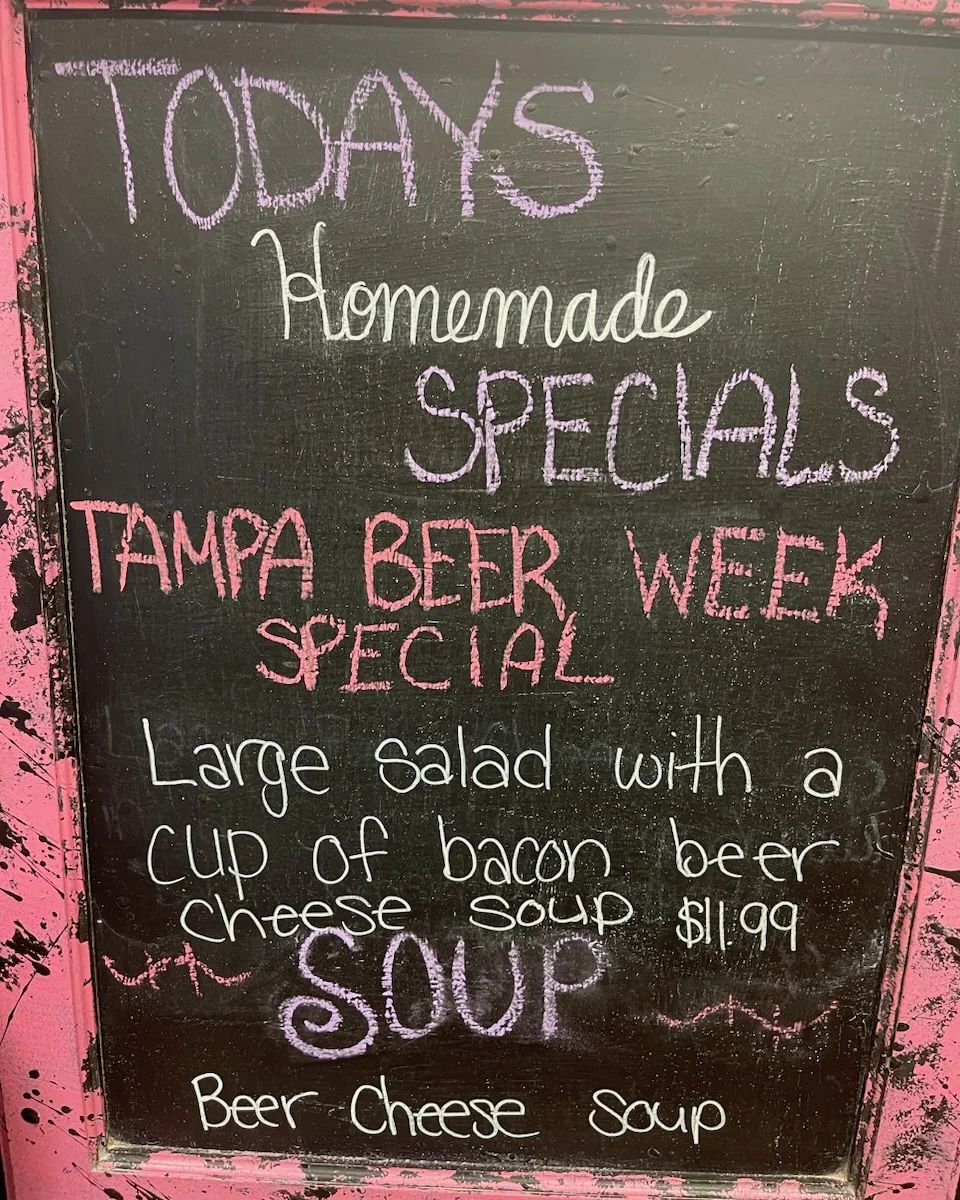 TODAYS
Homemade
SPECIALS
TAMPA BEER WEEK
SPECIAL
Large salad with a
cup of bacon beer
cheese soup $11.99
SOUP
Beer Cheese Soup